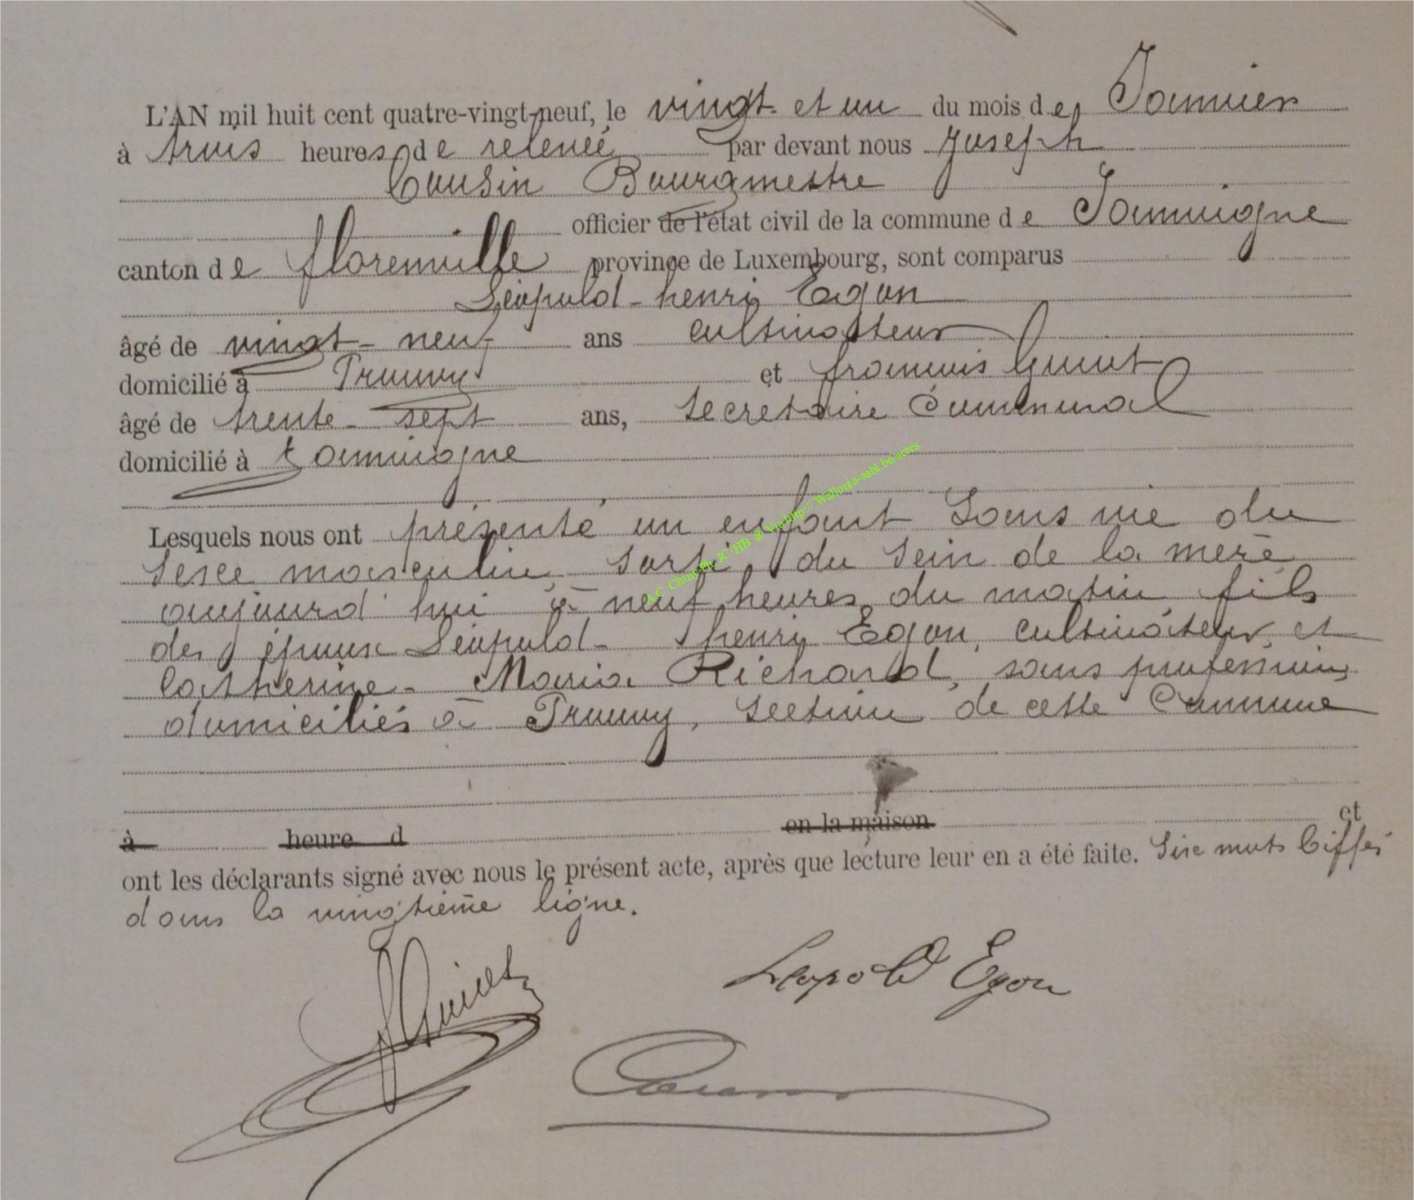 L'AN mil huit cent quatre-vingt-neuf, le vingt et un du mois de Janvier
à trois heures de relevée par devant nous Joseph
Cousin Bourgmestre
officier de l'état civil de la commune de Jamoigne
canton de florenville province de Luxembourg, sont comparus
Léopold-henri Egon
âgé de vingt-neuf ans cultivateur
domicilié à Prouvy et françois Guiot
âgé de trente-sept ans, Secrétaire Communal
domicilié à Jamoigne
Lesquels nous ont présenté un enfant Sans vie du
Sexe masculin, sorti du sein de la mère
aujourd'hui à neuf heures du matin fils
des époux Léopold-henri Egon, cultivateur et
Catherine-Maria Richard, sans profession,
domiciliés à Prouvy, Section de cette Commune
à heure d en la maison et
ont les déclarants signé avec nous le présent acte, après que lecture leur en a été faite. Six mots biffés
dans la vingtième ligne.
Leopold Egon